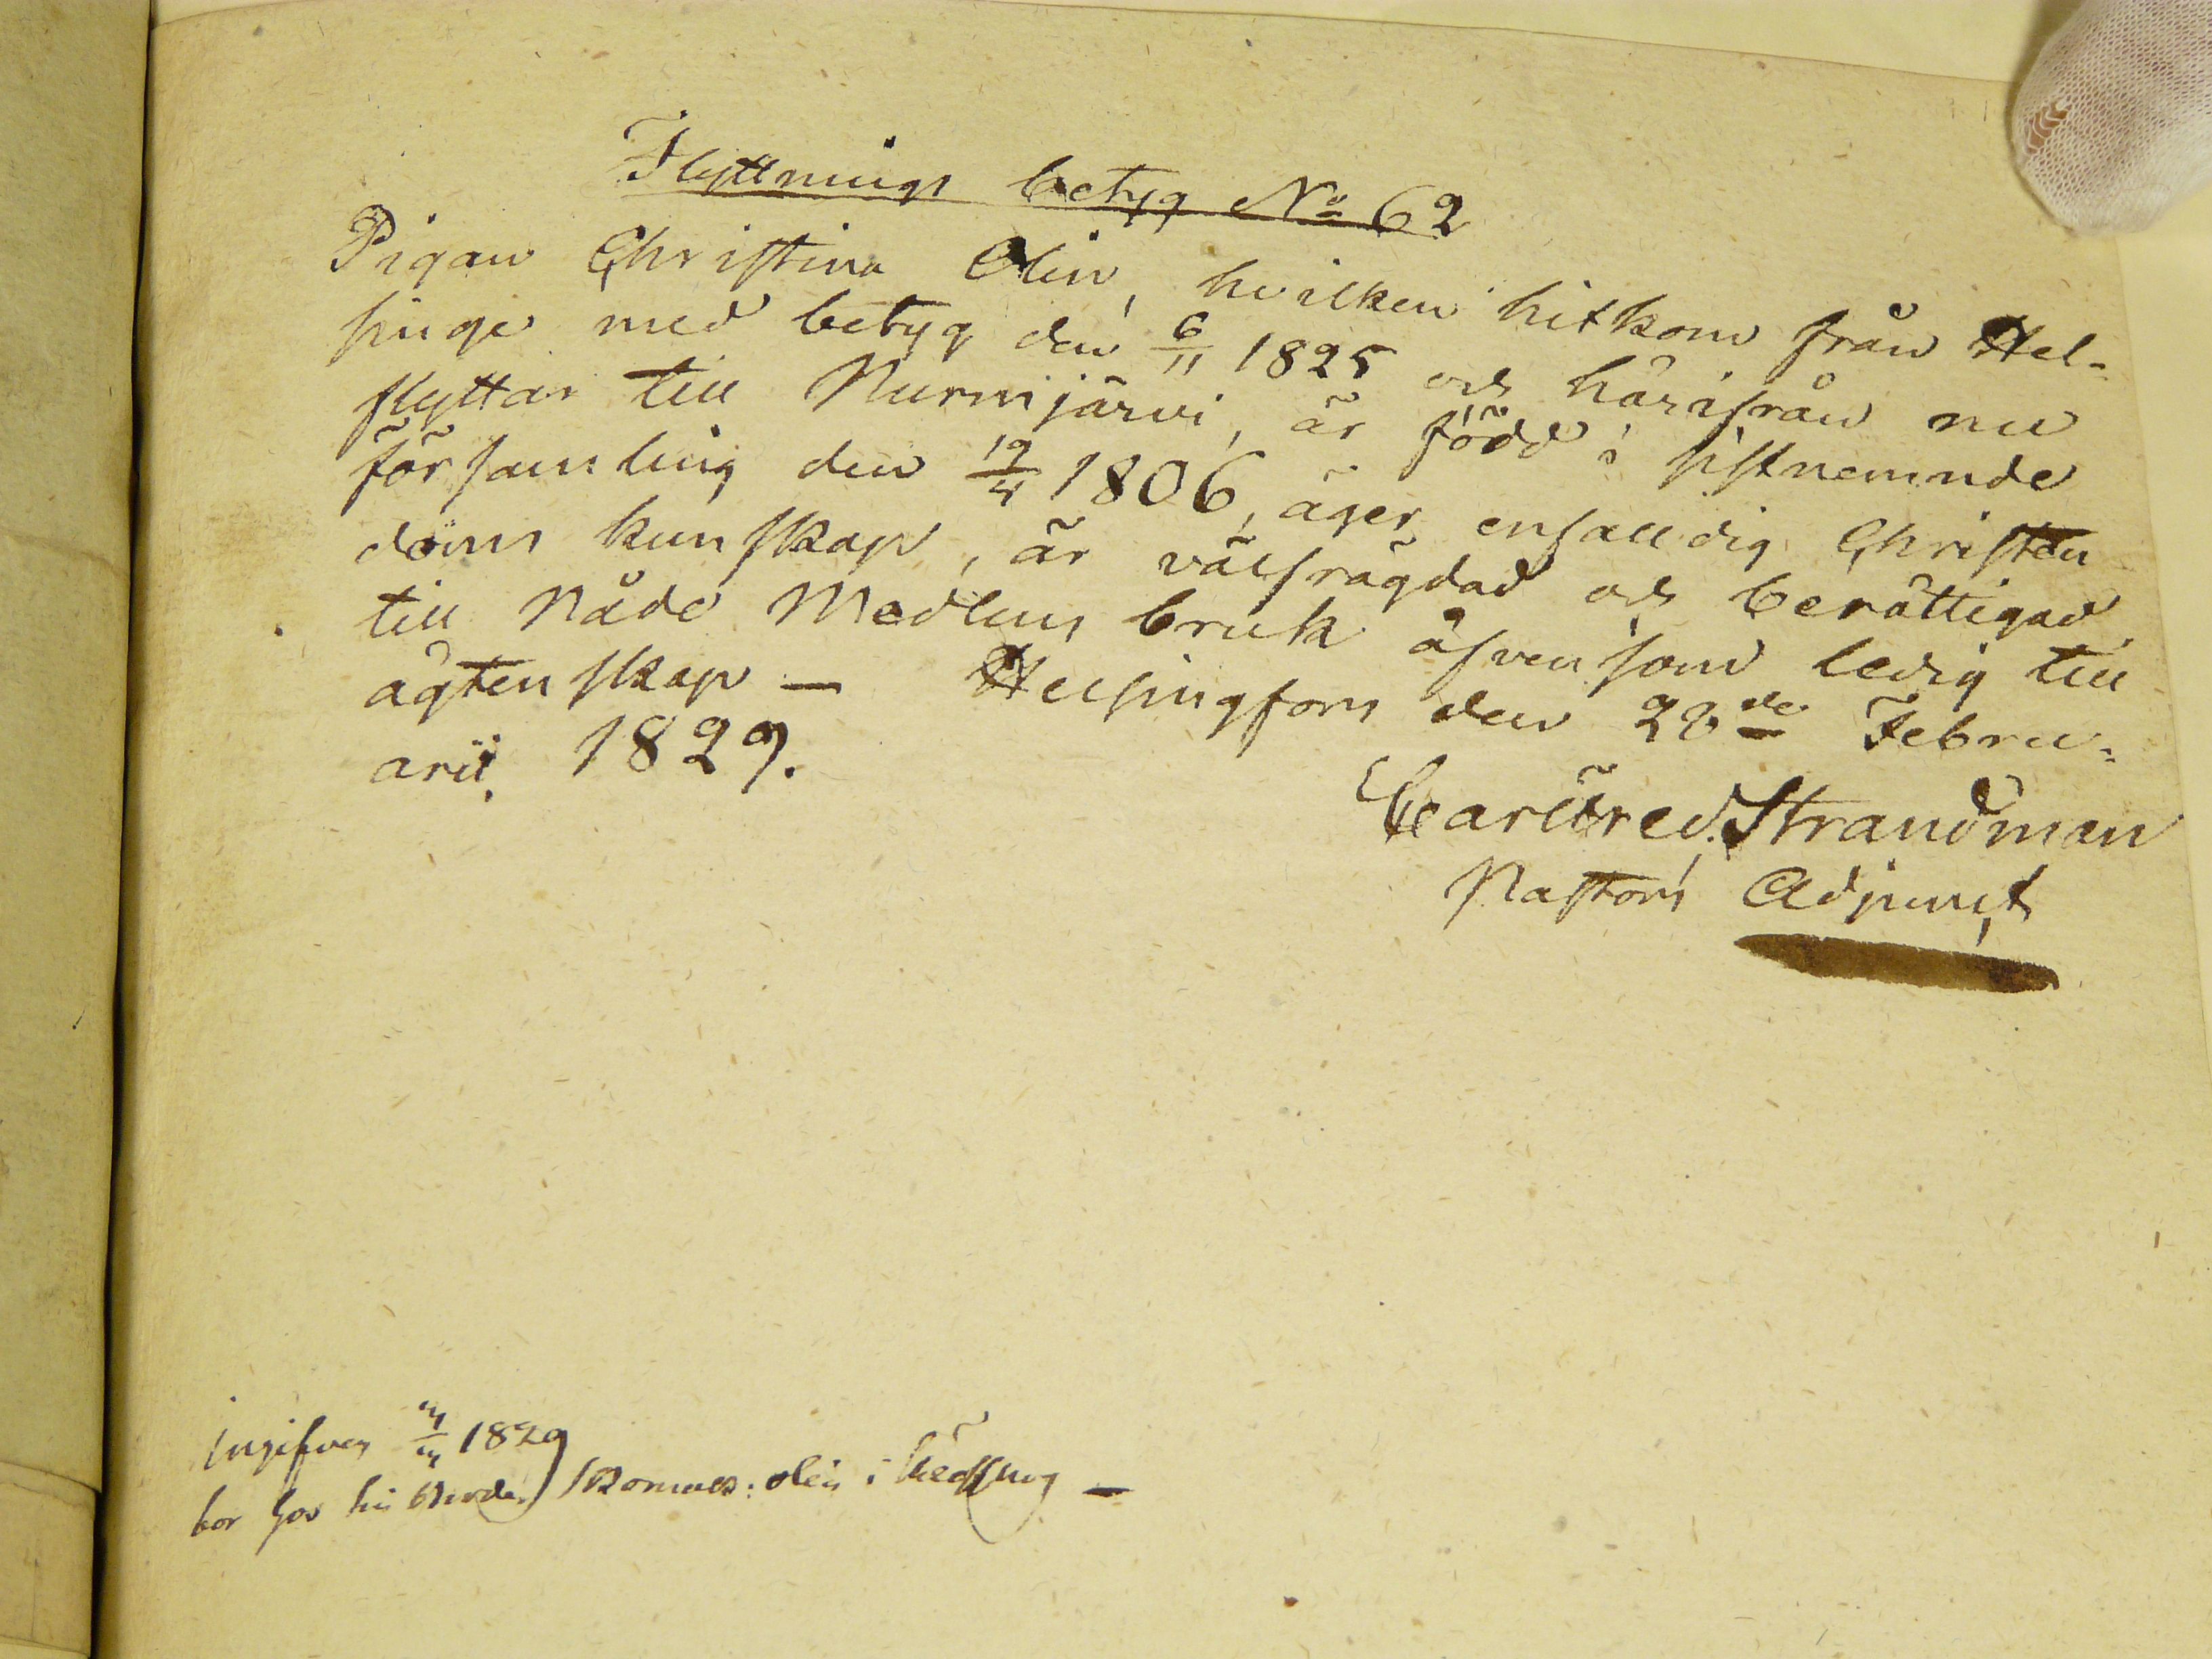 Flyttnings betyg No 62
Pigan Christina Olin, hvilken hitkom från Hel-
singe med betyg den 6/11 1825 och härifrån nu
flyttar till Nurmijärvi, är född i sistnemnde
församling den 12/4 1806, äger enfalldig Christen
doms kunskap, är välfrägdad och berättigad
till Nåde Medlens bruk äfvensom ledig till
ägtenskap — Helsingfors den 28de Febru-
arii 1829.
Carl Fred. Strandman
Pastors Adjunct
Ingifven 1829
bor hos sin Broder Skomak: Olin i